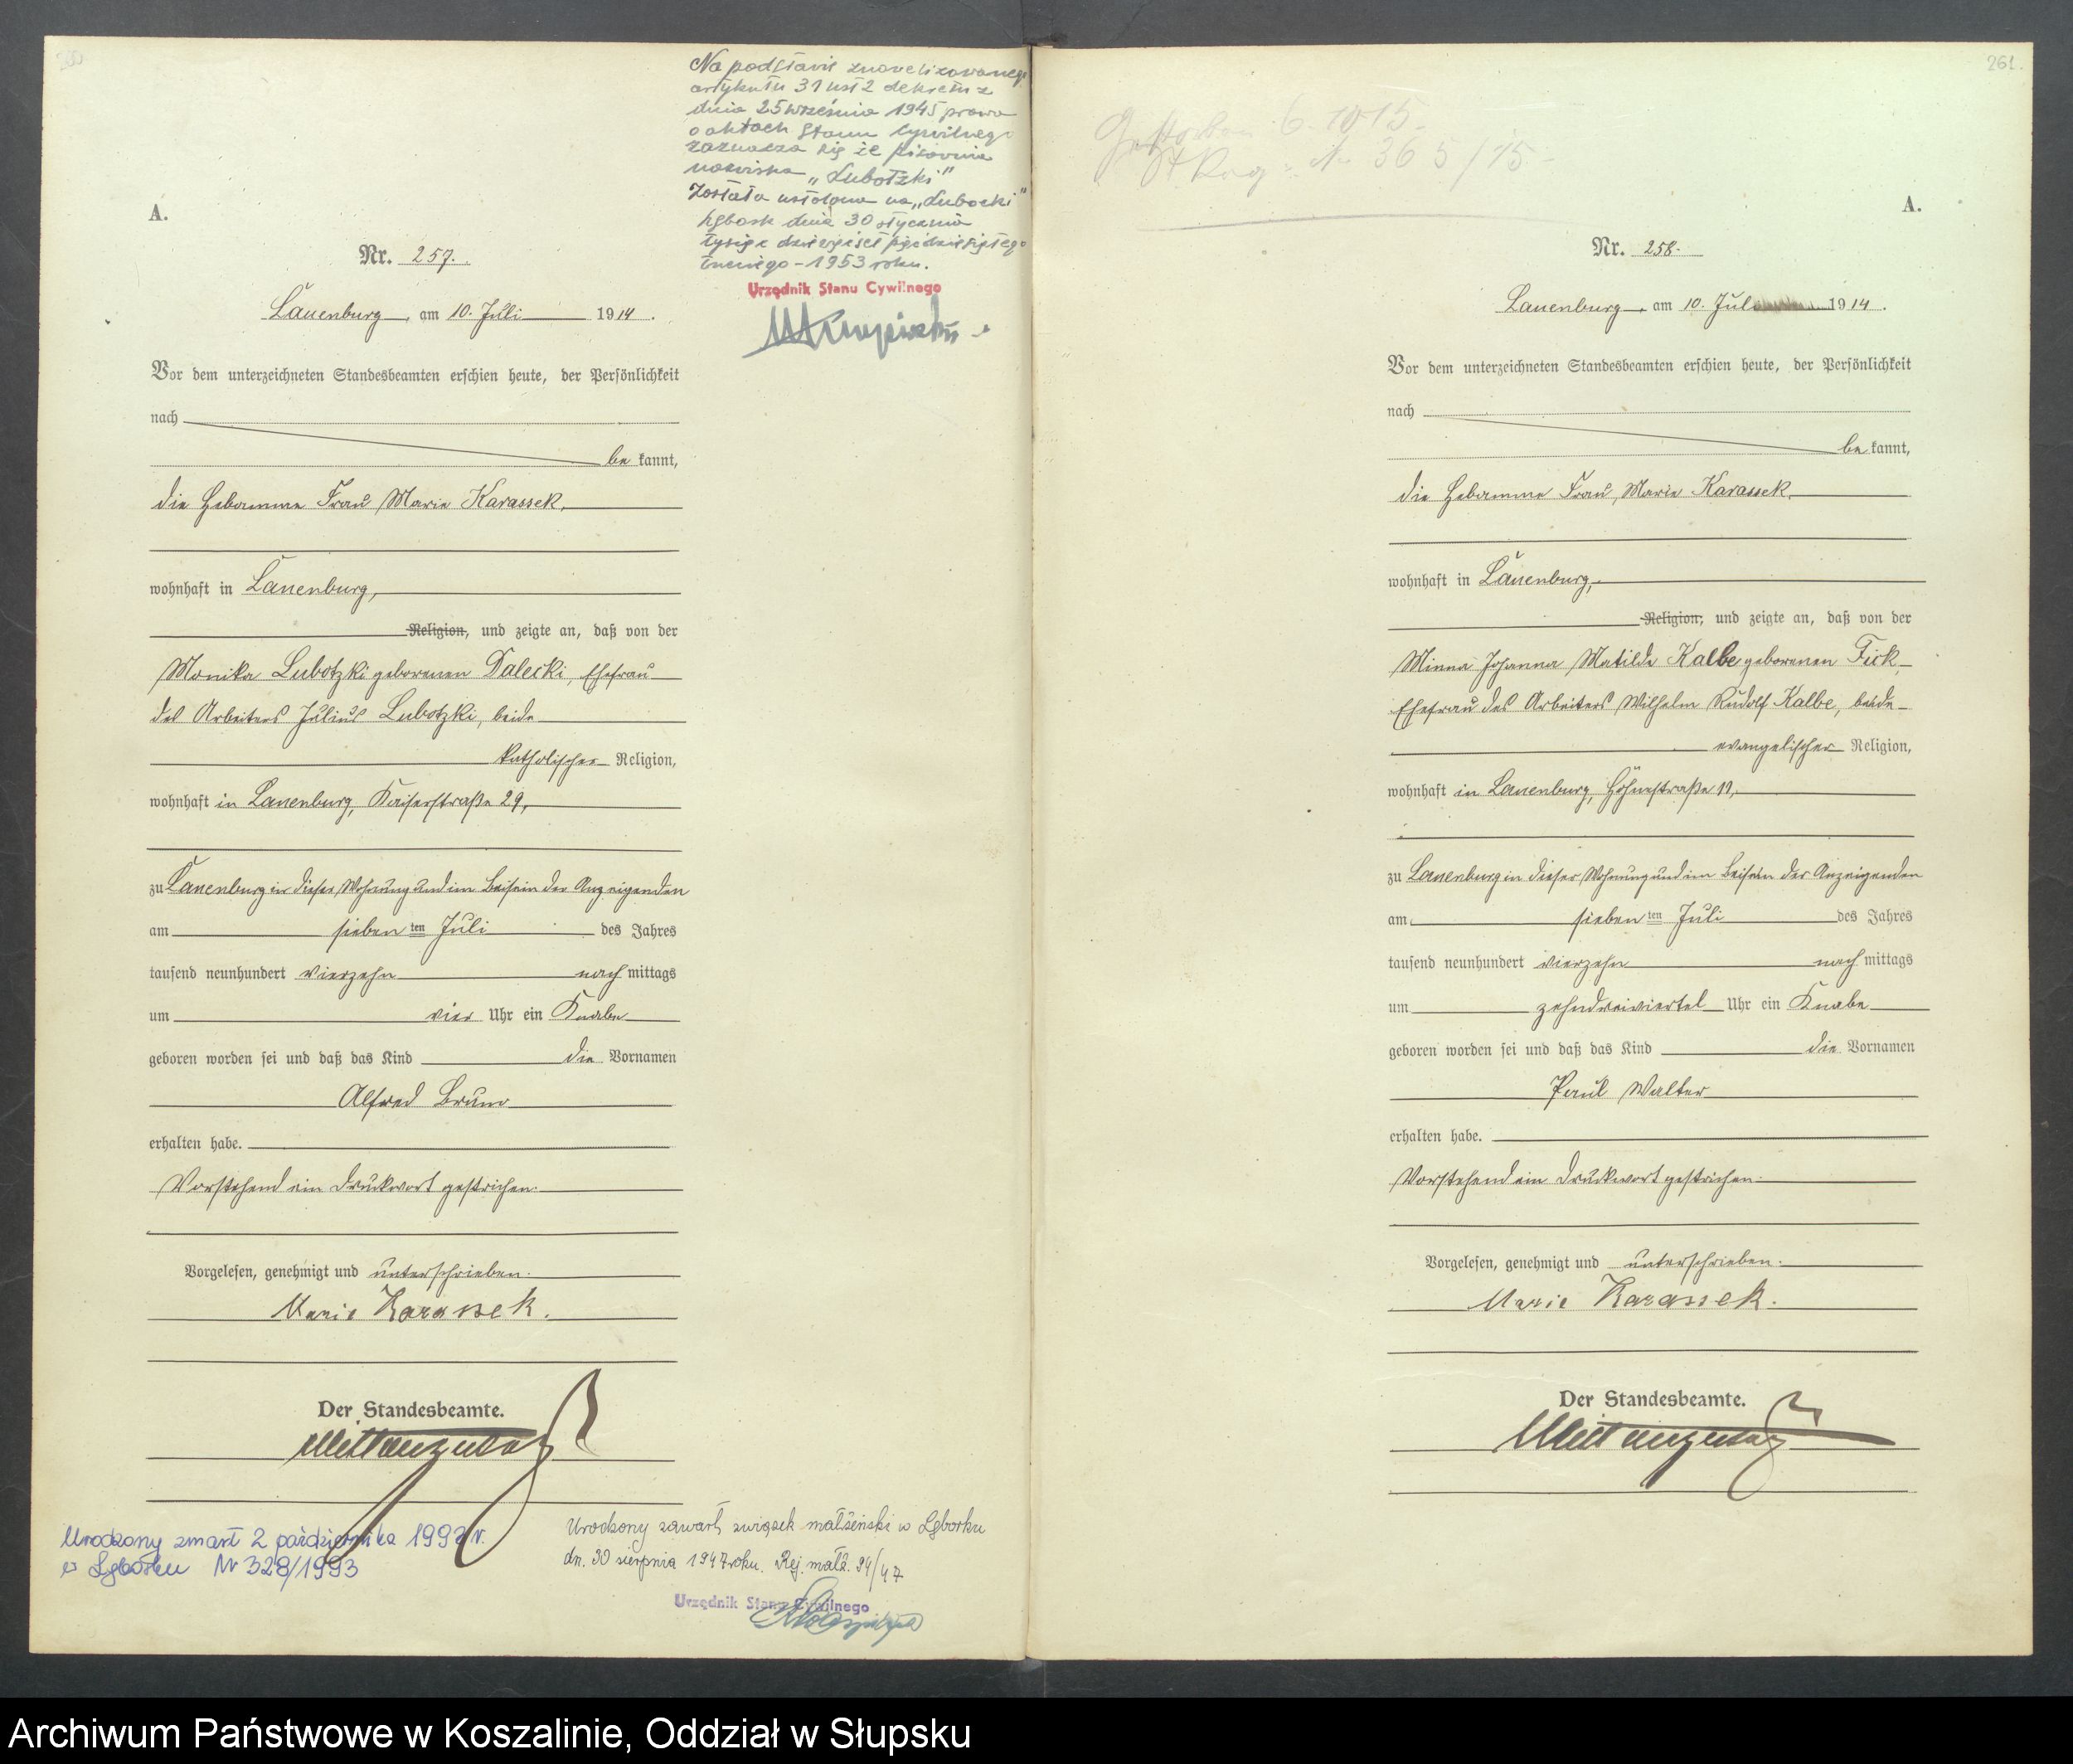 Na podstawie znowelizowanego
artykułu 31 ust 2 dekretu z
dnia 25 września 1945 prawo
o aktach stanu cywilnego
zaznacza się że pisownia
nazwiska „Lubotzki"
została ustalona na „Lubocki"
Lębork dnia 30 stycznia
tysiąc dziewięćset pięćdziesiątego
trzeciego – 1953 roku.
Urzędnik Stanu Cywilnego
A.
Nr. 257.
Lauenburg, am 10. Juli 1914.
Vor dem unterzeichneten Standesbeamten erschien heute, der Persönlichkeit
nach
be kannt,
die Hebamme Frau Marie Karassek,
wohnhaft in Lauenburg,
Religion, und zeigte an, daß von der
Monika Lubotzki geborenen Dalecki, Ehefrau
des Arbeiters Julius Lubotzki, beide
katholischer Religion,
wohnhaft in Lauenburg, Kaiserstraße 29,
zu Lauenburg in dieser Wohnung und im Beisein der Anzeigenden
am sieben ten Juli des Jahres
tausend neunhundert vierzehn nach mittags
um vier Uhr ein Knabe
geboren worden sei und daß das Kind die Vornamen
Alfred Bruno
erhalten habe.
Vorstehend ein Druckwort gestrichen.
Vorgelesen, genehmigt und unterschrieben.
Marie Karassek.
Der Standesbeamte.
Urodzony zmarł 2 października 1993 r.
w Lęborku Nr 328/1993
Urodzony zawarł związek małżeński w Lęborku
dn. 30 sierpnia 1947 roku. Rej. małż. 94/47
Urzędnik Stanu Cywilnego
261.
Gestorben 6. 10 15.
St Reg: N 365/15
A.
Nr. 258.
Lauenburg, am 10. Juli 1914.
Vor dem unterzeichneten Standesbeamten erschien heute, der Persönlichkeit
nach
be kannt,
die Hebamme Frau Marie Karassek,
wohnhaft in Lauenburg,
Religion, und zeigte an, daß von der
Minna Johanna Matilde Kalbe geborenen Fick,
Ehefrau des Arbeiters Wilhelm Rudolf Kalbe, beide
evangelischer Religion,
wohnhaft in Lauenburg, Höhnestraße 11,
zu Lauenburg in dieser Wohnung und im Beisein der Anzeigenden
am sieben ten Juli des Jahres
tausend neunhundert vierzehn nach mittags
um zehndreiviertel Uhr ein Knabe
geboren worden sei und daß das Kind die Vornamen
Paul Walter
erhalten habe.
Vorstehend ein Druckwort gestrichen.
Vorgelesen, genehmigt und unterschrieben.
Marie Karassek.
Der Standesbeamte.
Archiwum Państwowe w Koszalinie, Oddział w Słupsku